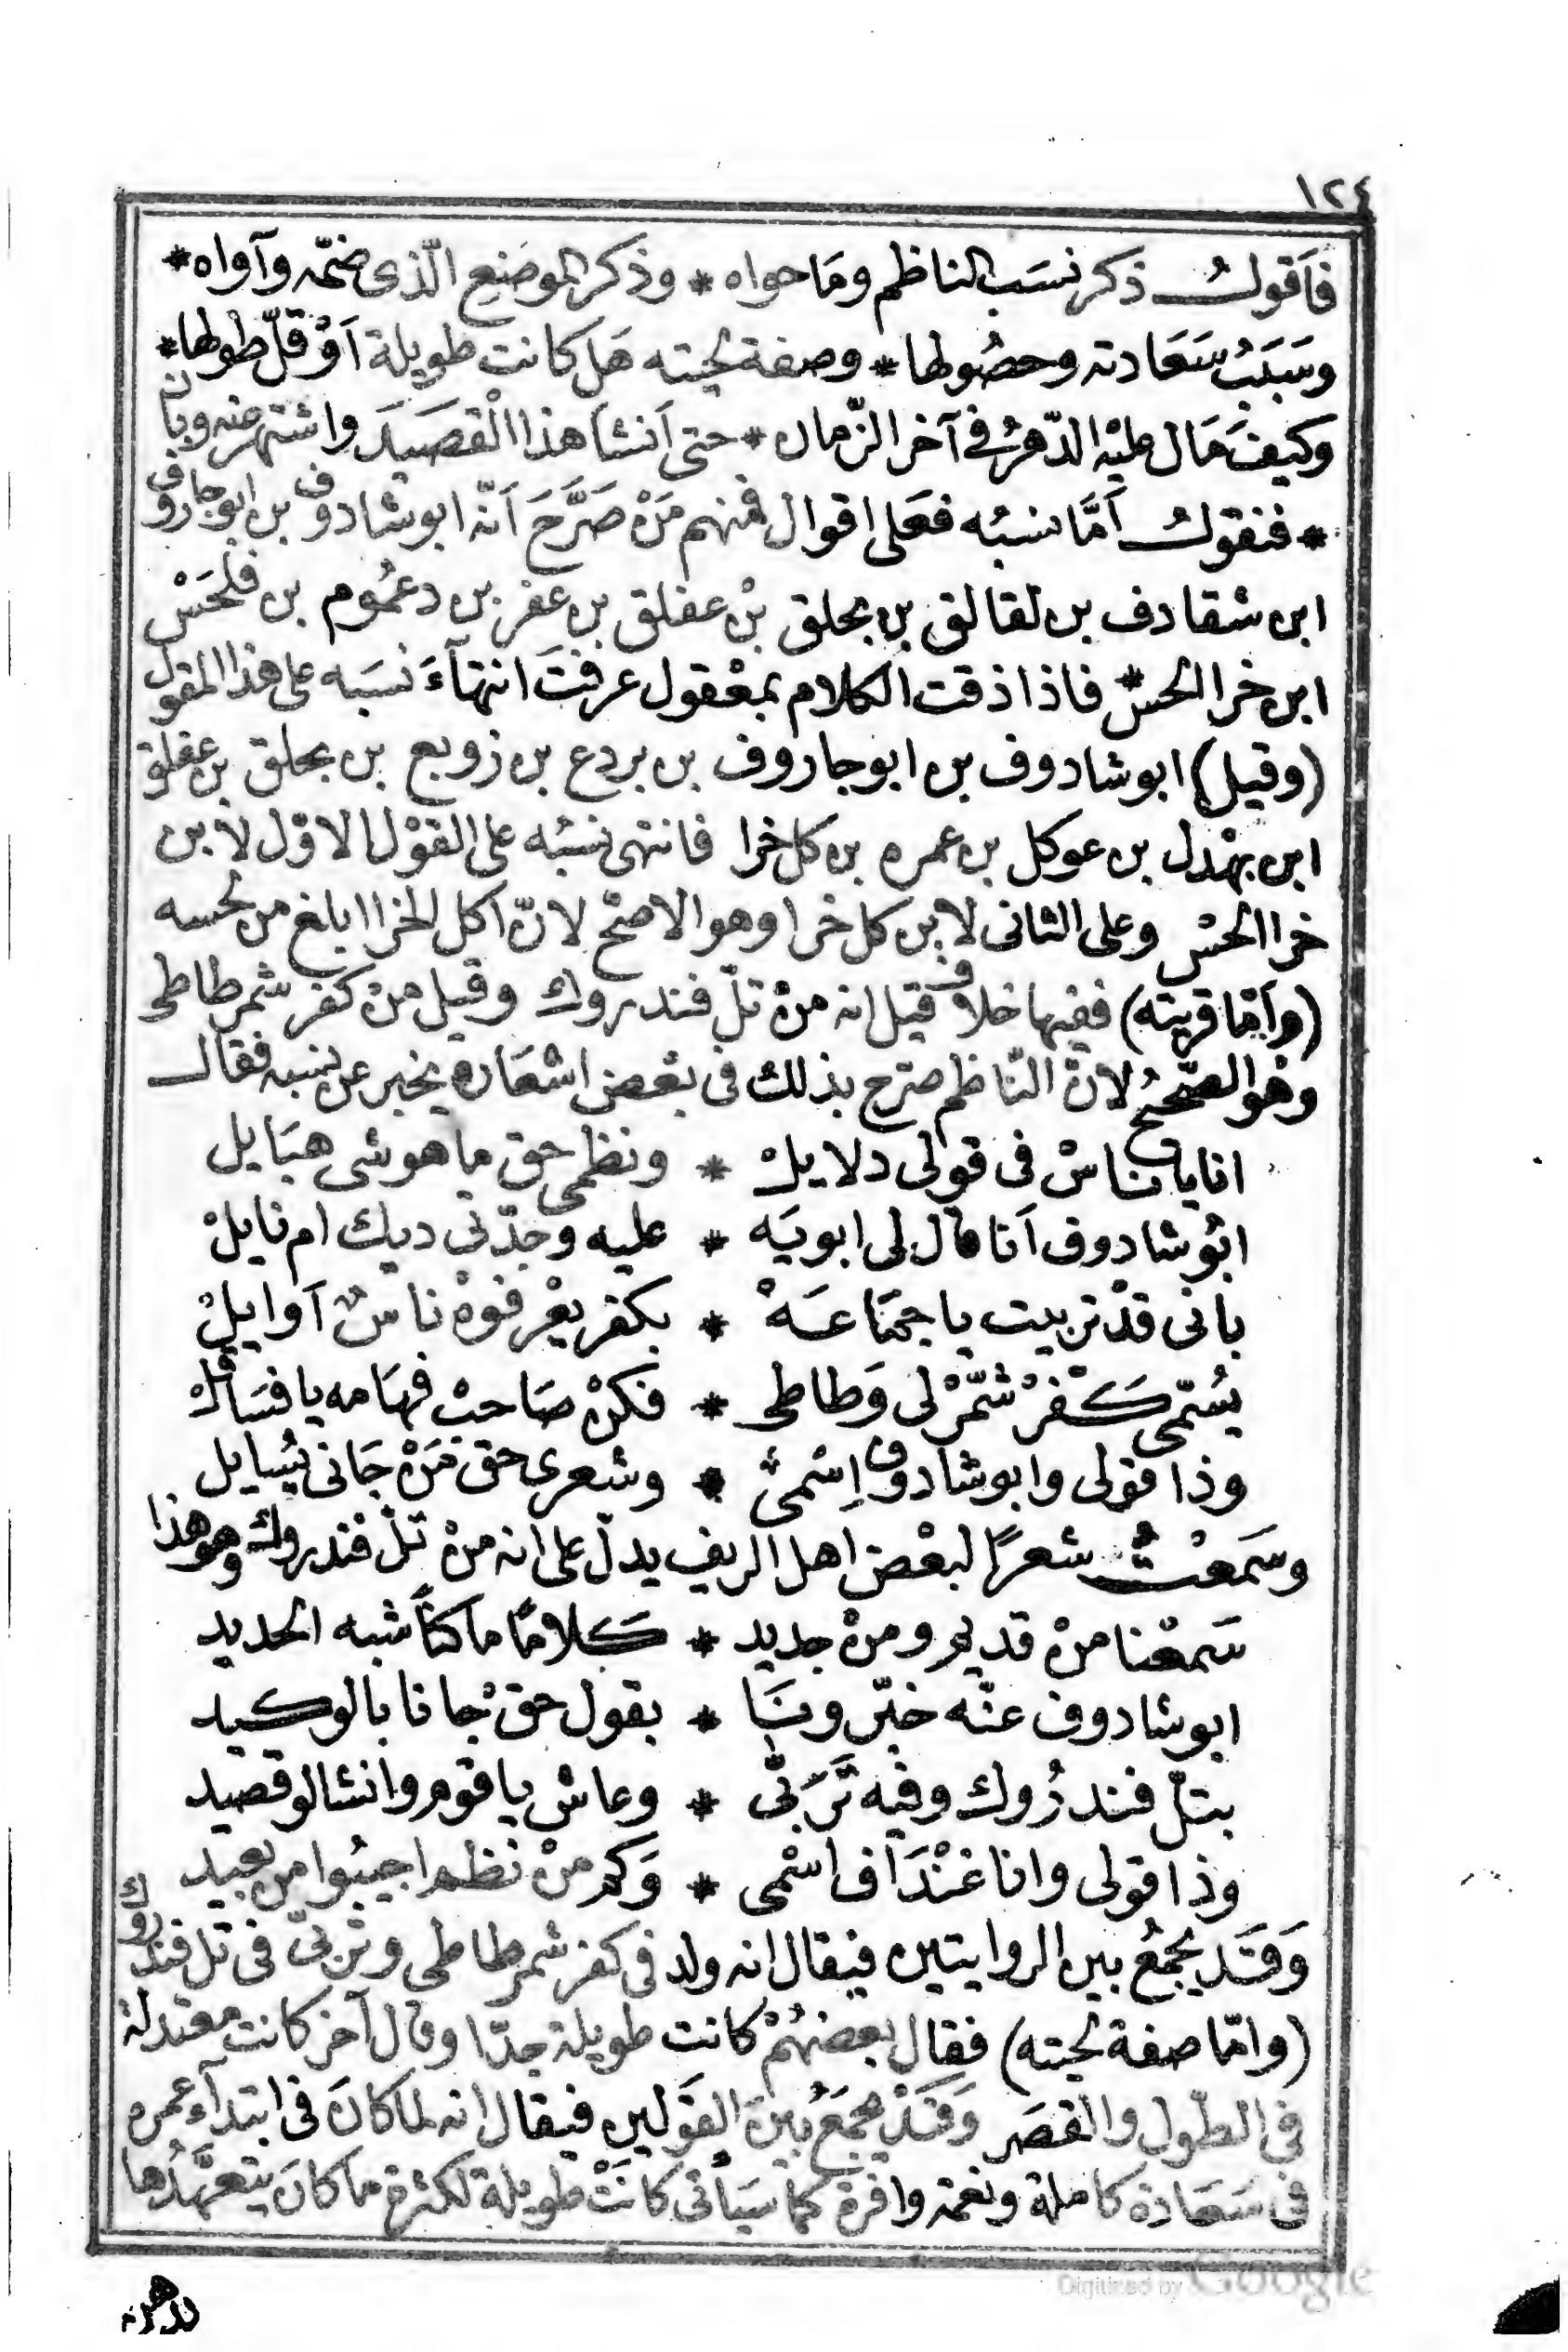 ١٢٤
فَاَقولُ ذكر نسَب الناظم ومَا حواه * وذكر الموضع الّذى ضمّه وآواه *
وسَبَبُ سَعَادته وحصُولها * وصفة لحيته هَل كانت طويلة اَوْ قلّ طولها *
وكيفَ مَال عليْه الدّهرُ فى آخر الزّمان * حتى اَنشا هذا الْقصَيدَ واشتهر عنه وبان
* فنقولُ اَمَّا نسبُه فعَلى اقوال فمنهم مَنْ صَرَّحَ اَنّه ابو شادوف بن ابو جاروف
ابن شقادف بن لقالق بن بحلق بنْ عفلق بن عفر بن دعمُوم بن فلحَسْ
ابن خرا الحسّ * فاذا ذقت الكلام بمعْقول عرفتَ انتهآءَ نسَبه على هذا المقول
(وقيل) ابو شادوف بن ابو جاروف بن بردع بن زوبع بن بحلق بن عفلق
ابن بهْدل بن عوكل بن عمره بن كل خرا فانتهى نسبُه على القوْل الاوّل لابن
خرا الحسْ وعلى الثانى لابن كل خرا وهو الاصحّ لانّ اكل الخرا ابلغ من لحسه
(وَاَمّا قريته) ففيها خلاف قيل انه منْ تلّ فندروك وقيل منْ كفر شمرطاطى
وَهُو الصّحيحُ لانّ النّاظم صَرّح بذلك فى بعْض اشعَاره يخبر عن نسبه فقال
انا يا ناسْ فى قولى دلايلْ * ونظمى حق ما هوشى هبَايل
ابُو شادوف اَنا قال لى ابويَه * عليه وجدّتى ديك ام نايلْ
بانى قدْ تربيت يا جمَاعَهْ * بكفر يعْرفوهْ ناسٌ اَوايلْ
يُسَمّى كَفْرْ شَمّرْ لى وَطاطى * فكنْ صَاحبْ فهَامه يا فسَاقلْ
وذا قولى وابو شادوف اِسْمىْ * وشعرى حق مَنْ جَانى يُسايل
وسَمعْتُ شعرًا لبعْض اهل الريف يدلّ على انه منْ تلّ فندروك وهو هذا
سَمعْنا منْ قديم ومنْ جديد * كلامًا ماكناً شبه الحديد
ابو شادوف عنّه خبّر ونبَا * بقول حقْ جانا بالوكيد
بتلّ فندرُوك وفيه تَرَبّى * وعاش يا قوم وانشا لو قصيد
وذا قولى وانا غنْدَاف اسْمى * وَكم منْ نظم اجيبُوا من بعيد
وَقَد يجْمَعُ بين الروايتين فيقال انه ولد فى كفر شمرطاطى وتربّى فى تل فندروك
(وامّا صفة لحيته) فقال بعضهُمْ كانت طويلة جدّا وقال آخر كانت معتدلة
فى الطّول والقصَر وَقَدْ يجمَعُ بينَ القوَلين فيقال انه لما كانَ فى ابتدآء عمره
فى سَعَادة كاملة ونعمة وافرة كما سَيَاتى كانَتْ طويلة لكثرة ما كانَ يتعَهّدُها